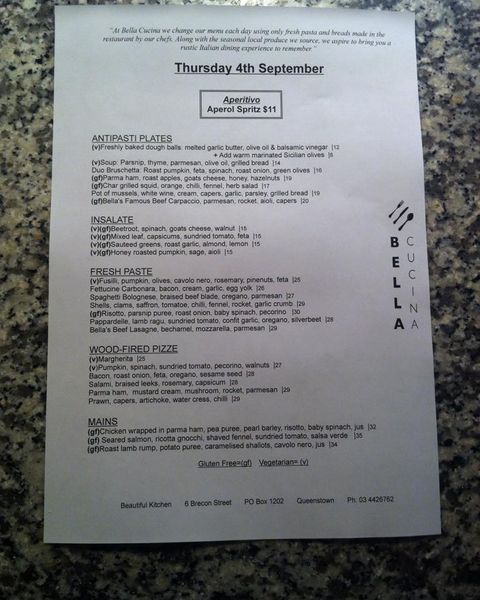 "At Bella Cucina we change our menu each day using only fresh pasta and breads made in the
restaurant by our chefs. Along with the seasonal local produce we source, we aspire to bring you a
rustic Italian dining experience to remember."
Thursday 4th September
Aperitivo
Aperol Spritz $11
ANTIPASTI PLATES
(v)Freshly baked dough balls: melted garlic butter, olive oil & balsamic vinegar |12
+ Add warm marinated Sicilian olives |6
(v)Soup: Parsnip, thyme, parmesan, olive oil, grilled bread |14
Duo Bruschetta: Roast pumpkin, feta, spinach, roast onion, green olives |16
(gf)Parma ham, roast apples, goats cheese, honey, hazelnuts |19
(gf)Char grilled squid, orange, chilli, fennel, herb salad |17
Pot of mussels, white wine, cream, capers, garlic, parsley, grilled bread |19
(gf)Bella's Famous Beef Carpaccio, parmesan, rocket, aioli, capers |20
INSALATE
(v)(gf)Beetroot, spinach, goats cheese, walnut |15
(v)(gf)Mixed leaf, capsicums, sundried tomato, feta |15
(v)(gf)Sauteed greens, roast garlic, almond, lemon |15
(v)(gf)Honey roasted pumpkin, sage, aioli |15
FRESH PASTE
(v)Fusilli, pumpkin, olives, cavolo nero, rosemary, pinenuts, feta |25
Fettucine Carbonara, bacon, cream, garlic, egg yolk |26
Spaghetti Bolognese, braised beef blade, oregano, parmesan |27
Shells, clams, saffron, tomatoe, chilli, fennel, rocket, garlic crumb |29
(gf)Risotto, parsnip puree, roast onion, baby spinach, pecorino |30
Pappardelle, lamb ragu, sundried tomato, confit garlic, oregano, silverbeet |28
Bella's Beef Lasagne, bechamel, mozzarella, parmesan |29
WOOD-FIRED PIZZE
(v)Margherita |25
(v)Pumpkin, spinach, sundried tomato, pecorino, walnuts |27
Bacon, roast onion, feta, oregano, sesame seed |28
Salami, braised leeks, rosemary, capsicum |28
Parma ham, mustard cream, mushroom, rocket, parmesan |29
Prawn, capers, artichoke, water cress, chilli |29
MAINS
(gf)Chicken wrapped in parma ham, pea puree, pearl barley, risotto, baby spinach, jus |32
(gf) Seared salmon, ricotta gnocchi, shaved fennel, sundried tomato, salsa verde |35
(gf)Roast lamb rump, potato puree, caramelised shallots, cavolo nero, jus |34
Gluten Free=(gf) Vegetarian= (v)
Beautiful Kitchen 6 Brecon Street PO Box 1202 Queenstown Ph: 03 4426762
BELLA
CUCINA